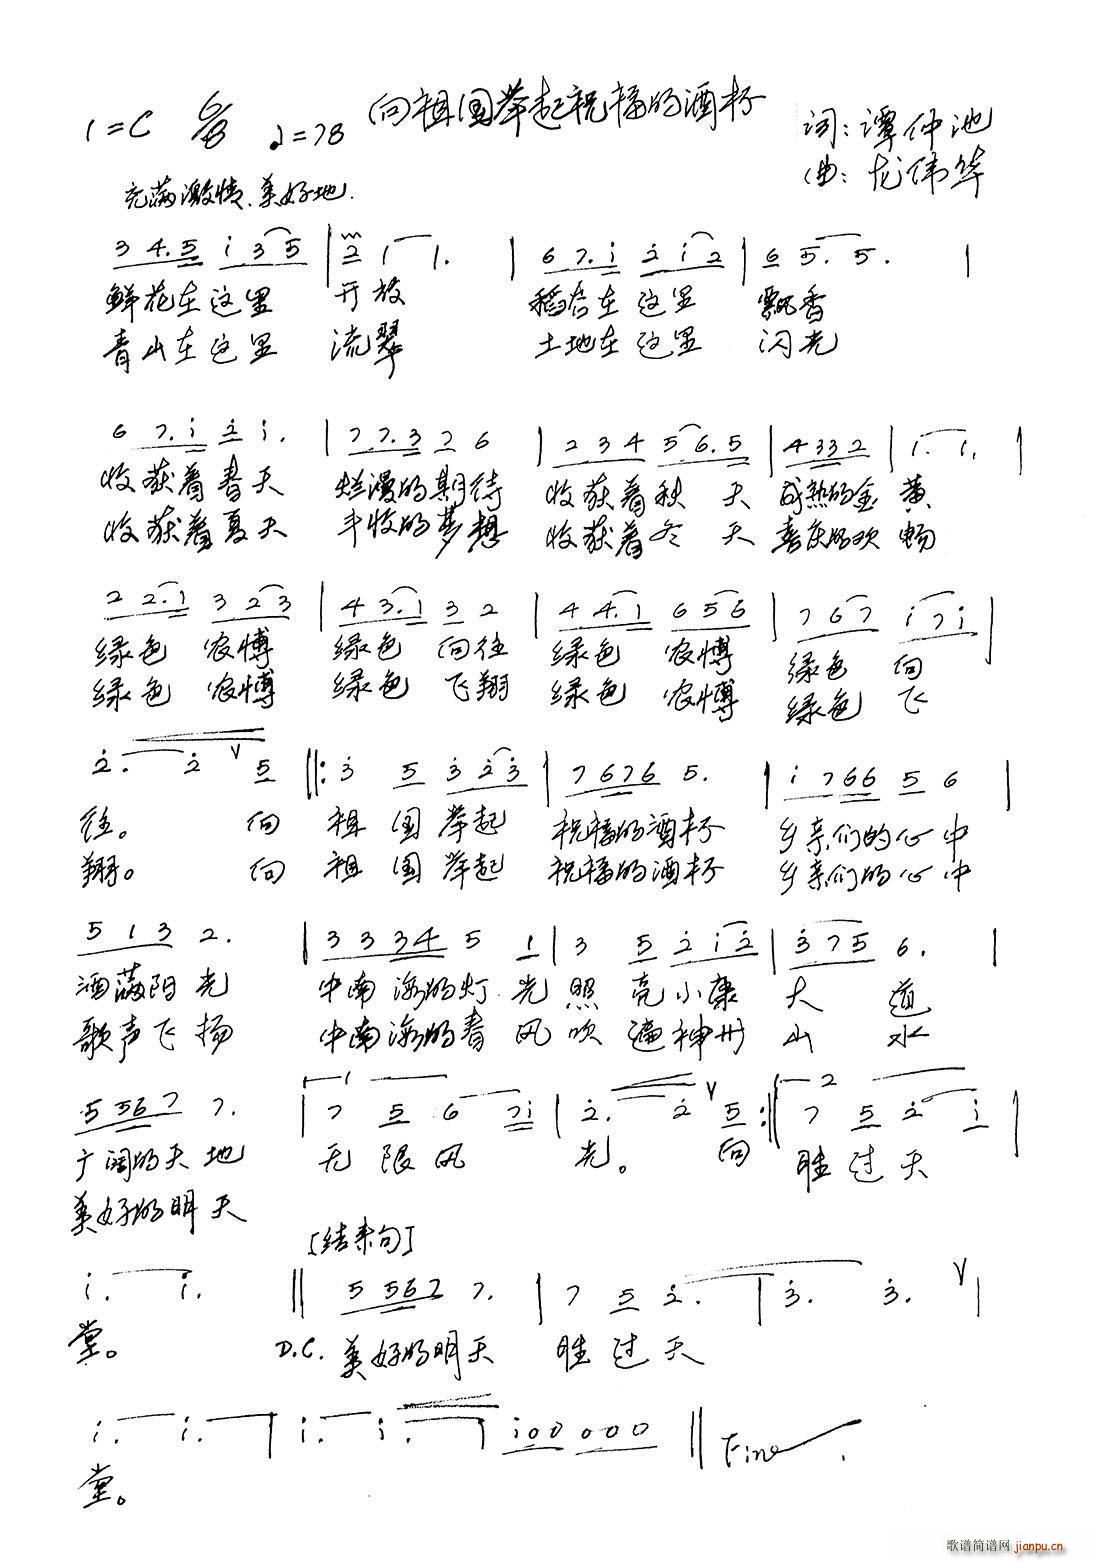 向祖国举起祝福的酒杯
1=C 6/8 ♩=78
词:谭仲池
曲:龙伟华
充满激情、美好地.
3 4. 5 i 3 5 | 2 1 1. | 6 7. i 2 i 2 | 6 5. 5. |
鲜花在这里 开放 稻谷在这里 飘香
青山在这里 流翠 土地在这里 闪光
6 7. i 2 i. | 7 7. 3 7 6 | 2 3 4 5. 6. 5 | 4 3 3 2 | i. i. |
收获着春天 烂漫的期待 收获着秋 天 成熟的金 黄
收获着夏天 丰收的梦想 收获着冬 天 喜庆的欢 畅
2 2. 1 3 2 3 | 4 3. 1 3 2 | 4 4. 1 6 5 6 | 7 6 7 i 7 i |
绿色 农博 绿色 向往 绿色 农博 绿色 向
绿色 农博 绿色 飞翔 绿色 农博 绿色 飞
2. 2 V 5 ||: 3 5 3 2 3 | 7 6 7 6 5. | i 7 6 6 5 6 |
往。 向 祖 国 举起 祝福的酒杯 乡亲们的心中
翔。 向 祖 国 举起 祝福的酒杯 乡亲们的心中
5 1 3 2. | 3 3 3 4 5 1 | 3 5 2 i 2 | 3 7 5 6. |
洒满阳 光 中南海的灯 光 照 亮小康 大 道
歌声飞 扬 中南海的春 风 吹 遍神州 山 水
5 5 6 7 7. | 1 7 5 6 7 i | 2. 2 V 5 :|| 2 7 5 2 i |
广阔的天地 无 限 风 光。 向 胜 过 天
美好的明天
[结束句]
i. i. || 5 5 6 7 7. | 7 5 2. | 3. 3. V |
堂。 D.C. 美好的明天 胜 过 天
i. i. | i. i. | i 0 0 0 0 0 || Fine.
堂。
歌谱简谱网 jianpu.cn